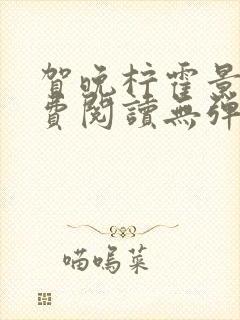 賀晚柠霍景
費閱讀無彈
喵嗚菜